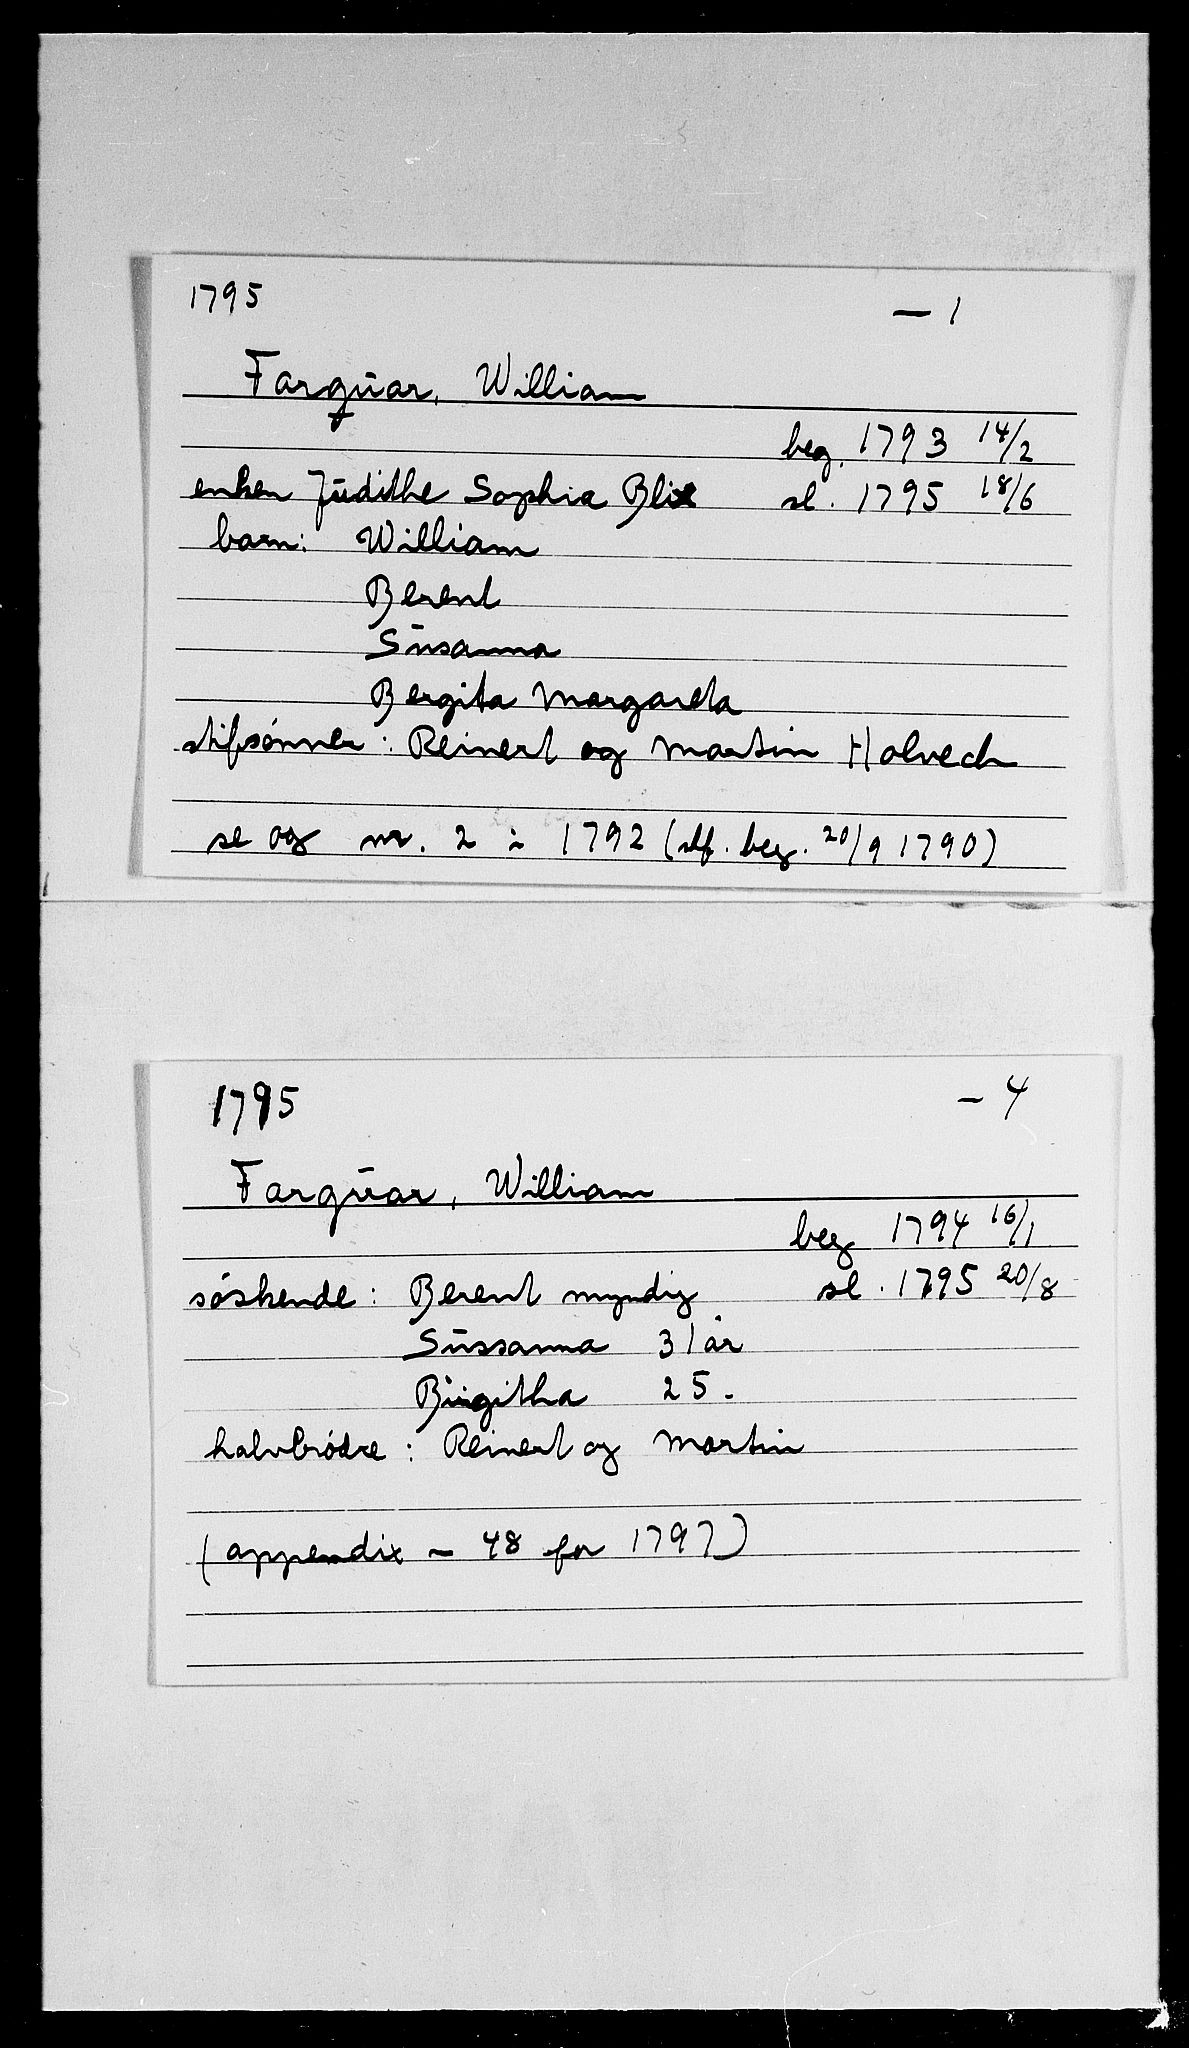 1795 — 1
Fargŭar, William
beg. 1793 14/2
enken Jŭdithe Sophia Blix sl. 1795 18/6
barn: William
Berent
Sŭsanna
Bergita Margareta
stifsønner: Reinert og Martin Holveck
se og nr. 2 i 1792 (slf. beg. 20/9 1790)
1795 — 4
Fargŭar, William
beg 1794 16/1
søskende: Berent myndig sl. 1795 20/8
Sŭssanna 31 år
Birgitha 25 -
halvbrødre: Reinert og Martin
(appendix - 48 for 1797)